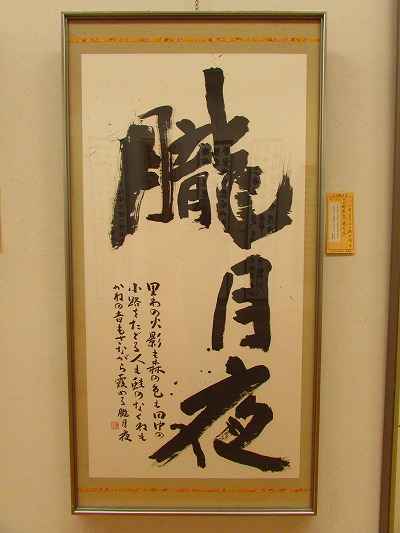 朧月夜
里わの火影も森の色も田中の
小路をたどる人も蛙のなくねも
かねの音もさながら霞める朧月夜